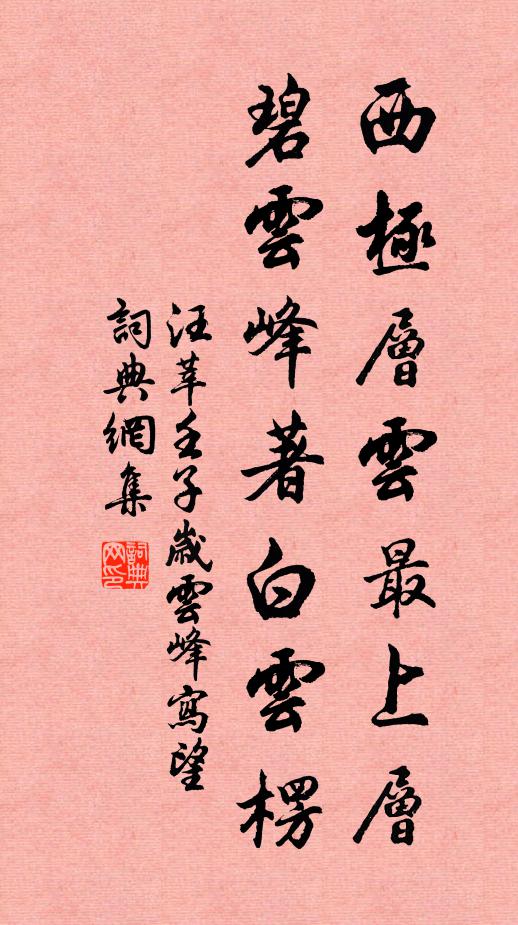 西極層雲最上層
碧雲峰著白雲楞
汪莘壬子歲雲峰寫望
詞典網集
詞典網印